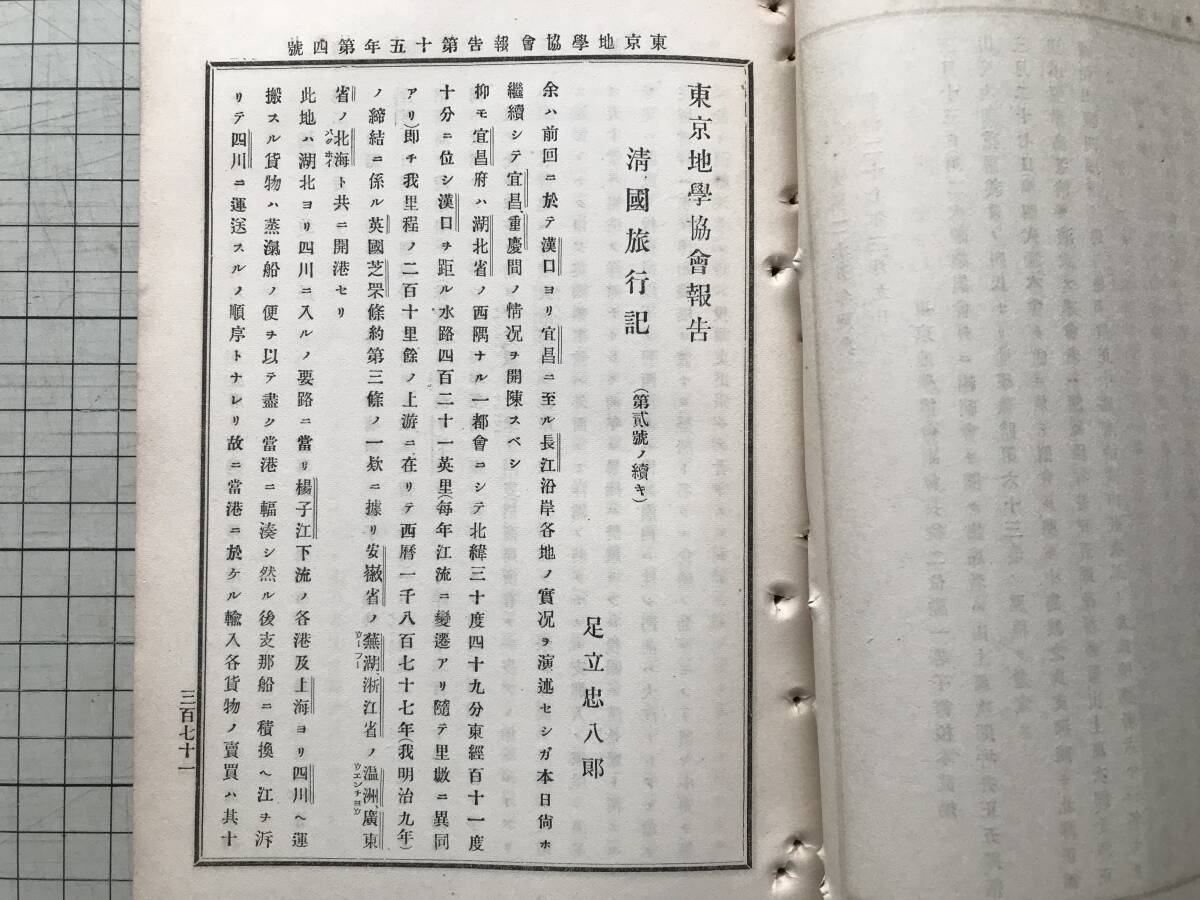 東京地學協會報告第十五年第四號
東京地學協會報告
淸國旅行記 (第貳號ノ續キ)
足立忠八郞
余ハ前回ニ於テ漢口ヨリ宜昌ニ至ル長江沿岸各地ノ實况ヲ演述セシガ本日尙ホ
繼續シテ宜昌、重慶間ノ情况ヲ開陳スベシ
抑モ宜昌府ハ湖北省ノ西隅ナル一都會ニシテ北緯三十度四十九分東經百十一度
十分ニ位シ漢口ヲ距ル水路四百二十一英里(每年江流ニ變遷アリ隨テ里數ニ異同
アリ)卽チ我里程ノ二百十里餘ノ上游ニ在リテ西曆一千八百七十七年(我明治九年)
ノ締結ニ係ル英國芝罘條約第三條ノ一欵ニ據リ安徽省ノ蕪湖浙江省ノ溫洲、廣東
ウーフー
ウエンチヨウ
省ノ北海ト共ニ開港セリ
パクホイ
此地ハ湖北ヨリ四川ニ入ルノ要路ニ當リ楊子江下流ノ各港及上海ヨリ四川ヘ運
搬スル貨物ハ蒸滊船ノ便ヲ以テ盡ク當港ニ輻湊シ然ル後支那船ニ積換ヘ江ヲ泝
リテ四川ニ運送スルノ順序トナレリ故ニ當港ニ於ケル輸入各貨物ノ賣買ハ其十
三百七十一